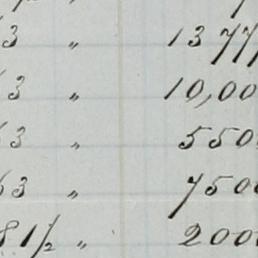 3 " 1377
63 " 10,00
63 " 550
63 " 750
81/2 " 200